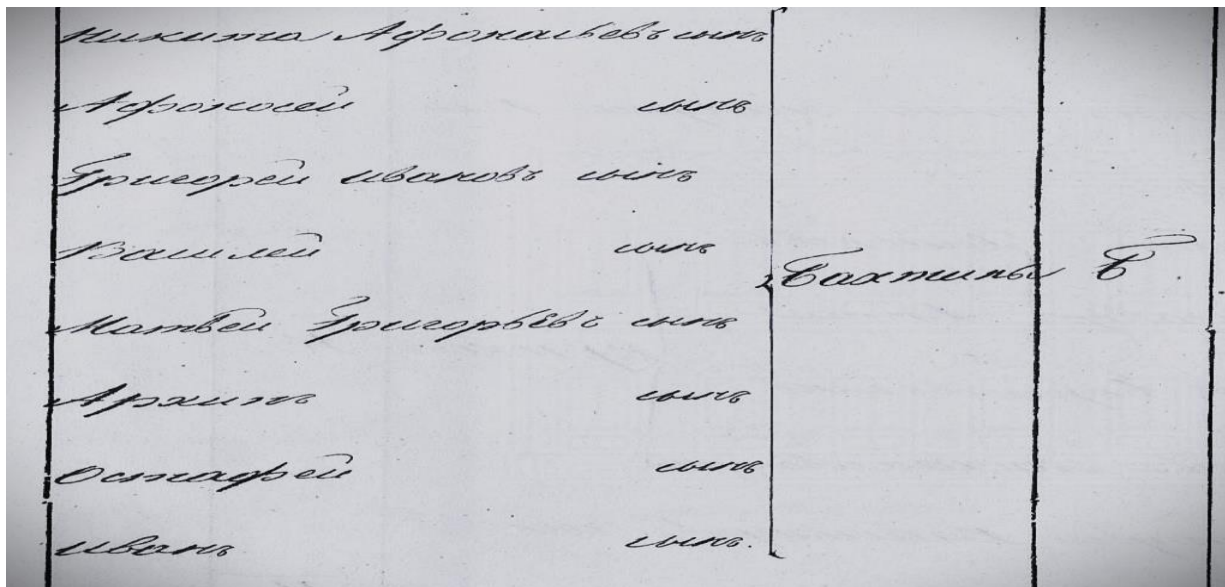 Никита Афонасьевъ сынъ
Афоносей сынъ
Григорей ивановъ сынъ
Василей сынъ
Матвей Григорьевъ сынъ
Архипъ сынъ
Остафей сынъ
иванъ сынъ.
Бахтины Б